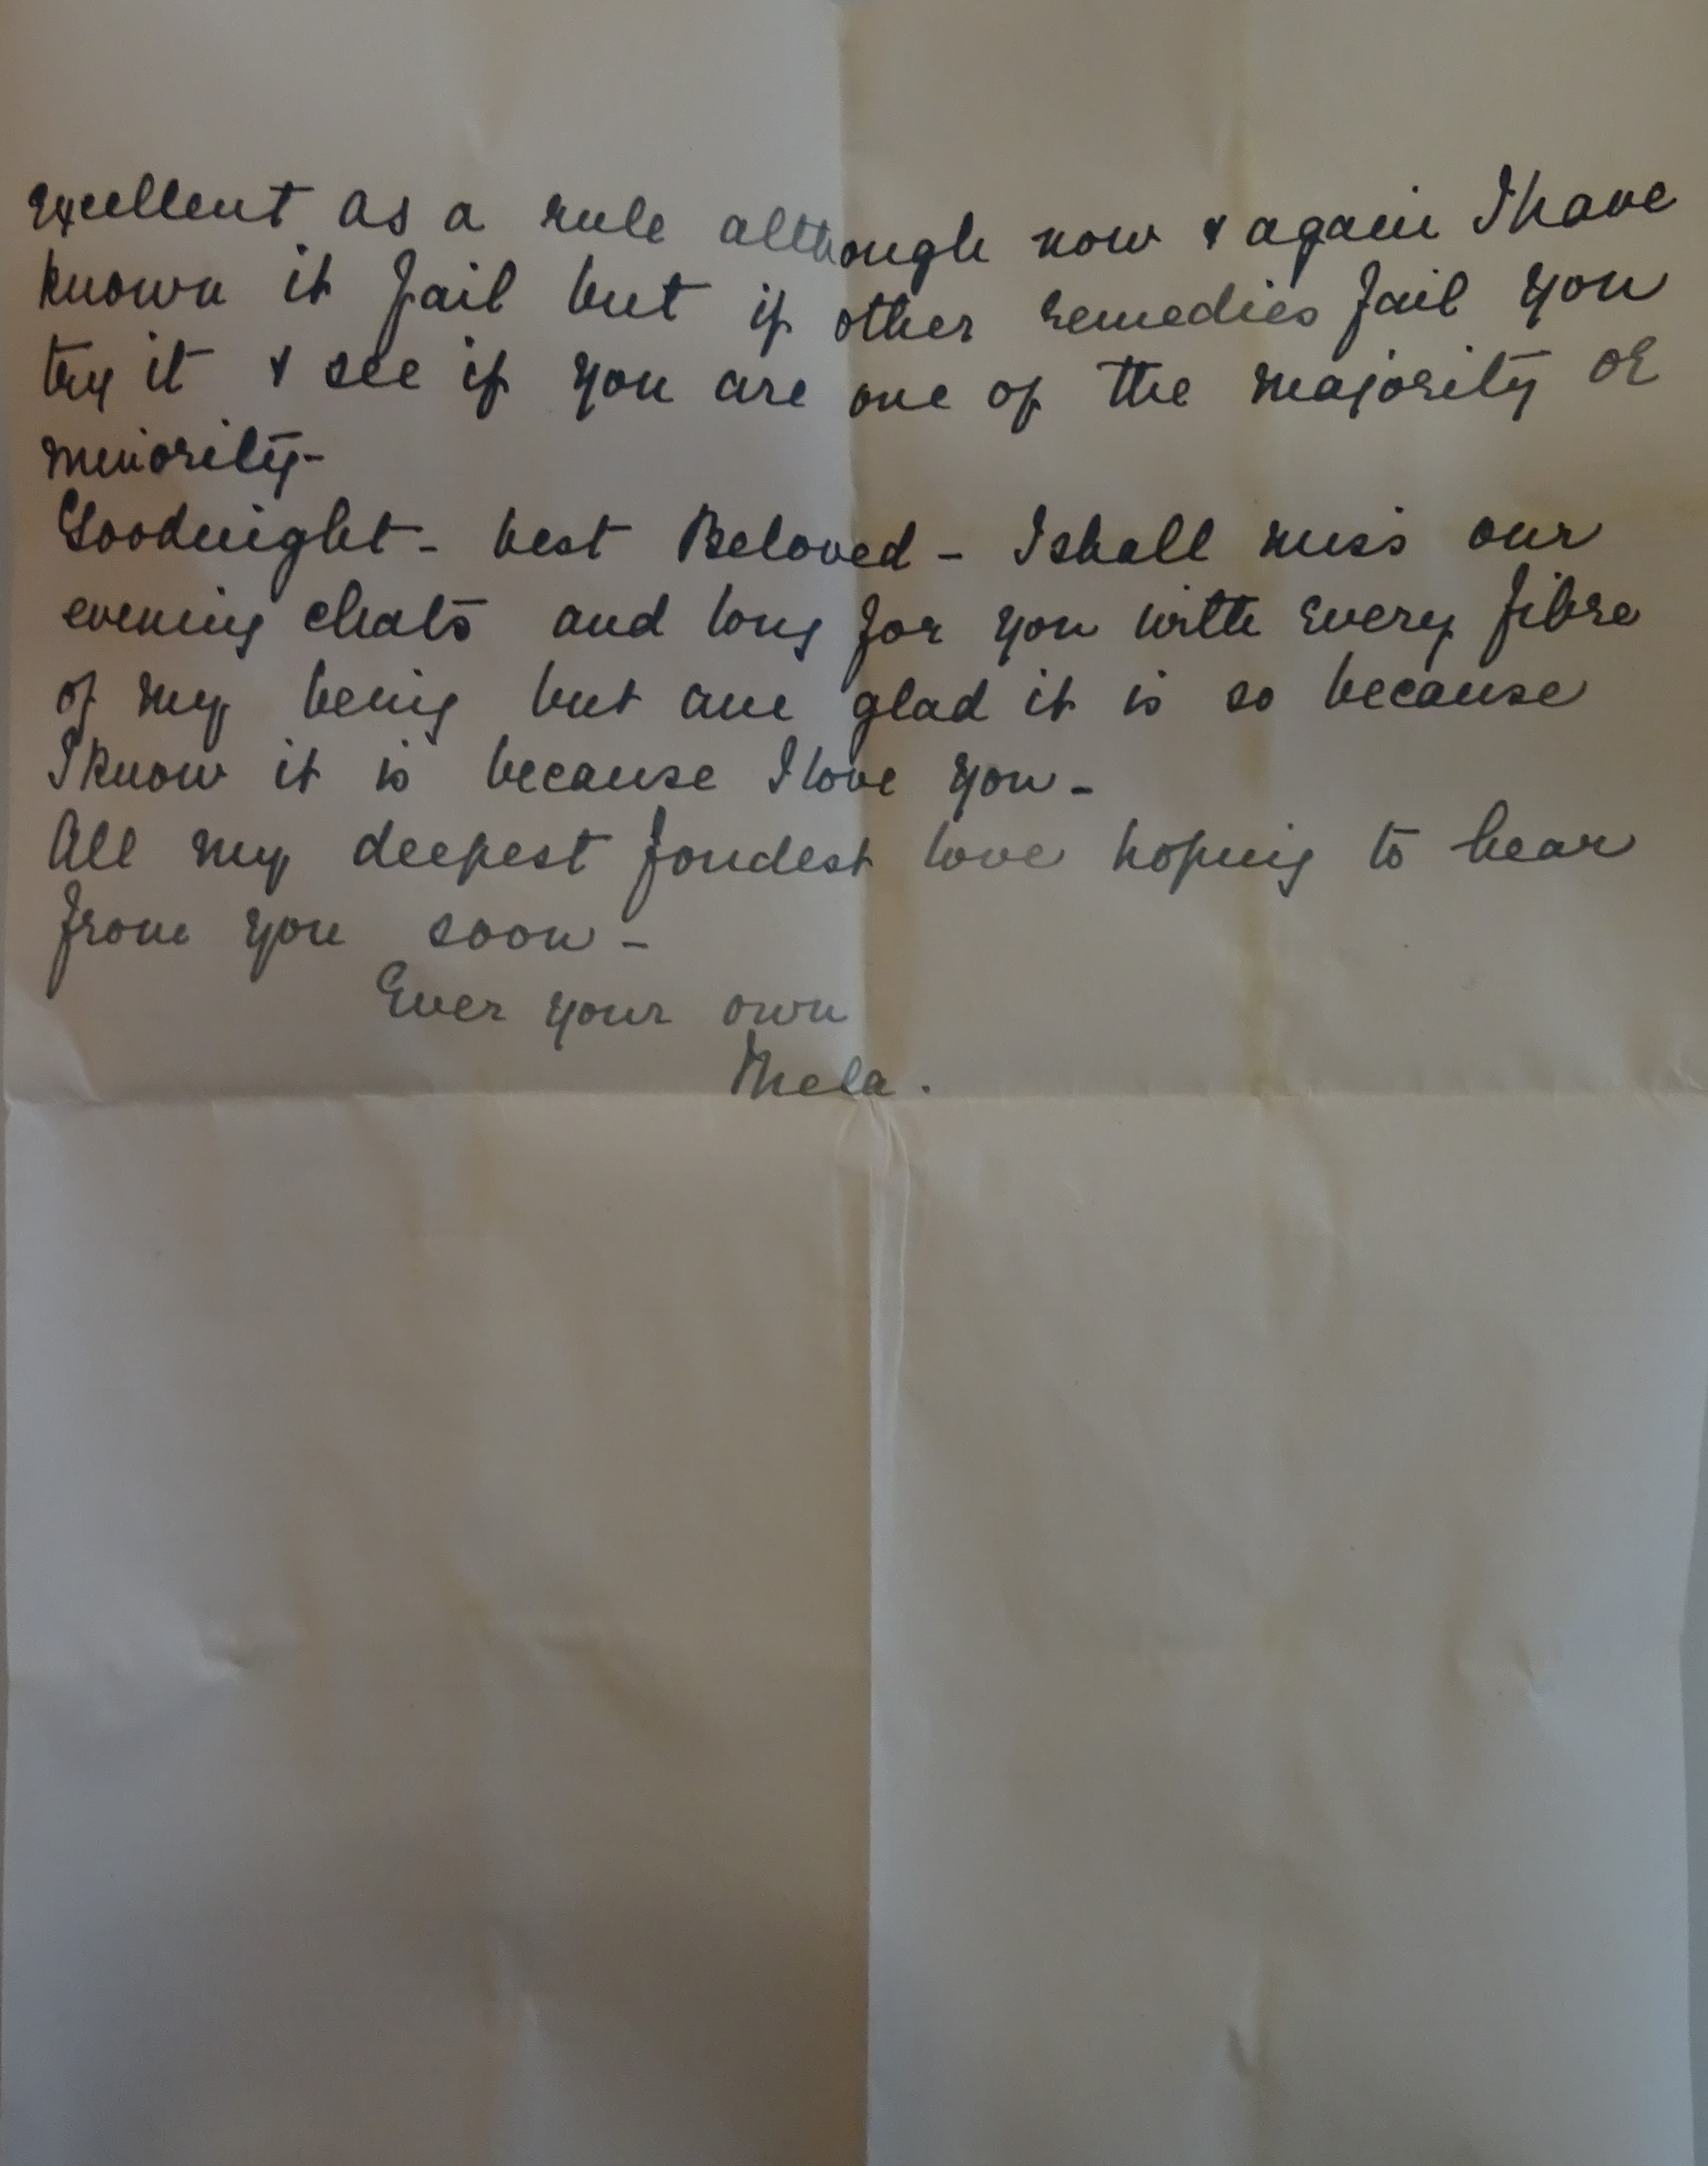 Excellent as a rule although now & again I have
known it fail but if other remedies fail you
try it & see if you are one of the majority or
minority-
Goodnight - best Beloved - I shall miss our
evening chats and long for you with every fibre
of my being but am glad it is so because
I know it is because I love you -
All my deepest fondest love hoping to hear
from you soon -
Ever your own
Mela.